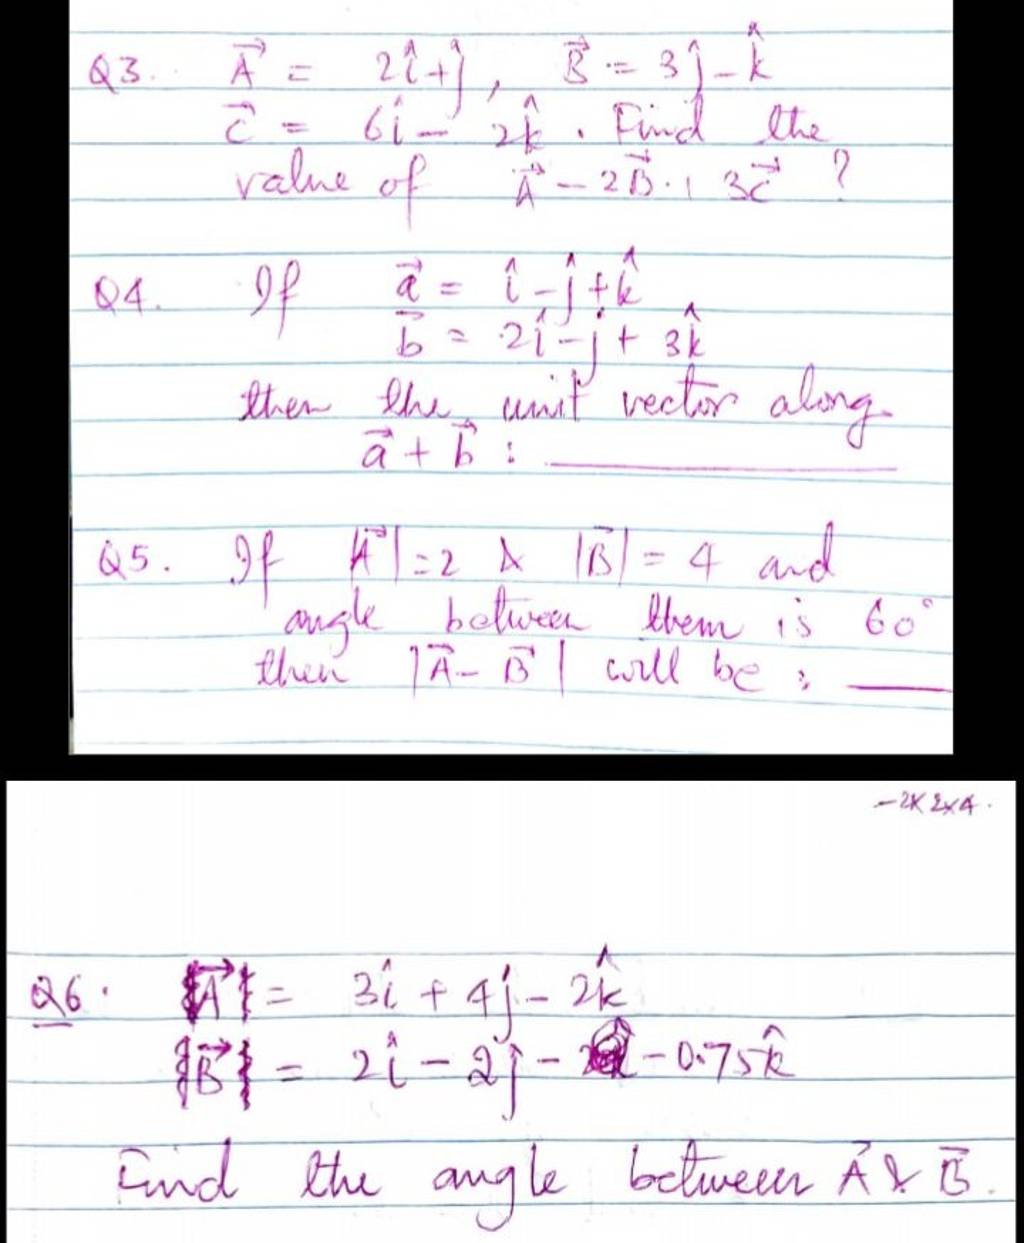 Q3. A⃗ = 2î+ĵ, B⃗ = 3ĵ-k̂
C⃗ = 6î - 2k̂. Find the
value of A⃗ - 2B⃗ + 3C⃗ ?
Q4. If a⃗ = î-ĵ+k̂
b⃗ = 2î-ĵ+ 3k̂
then the unit vector along
a⃗ + b⃗ : ______
Q5. If |A⃗|=2 & |B⃗| = 4 and
angle between them is 60°
then |A⃗ - B⃗| will be : ____
-2×2×4.
Q6. A⃗ = 3î + 4ĵ - 2k̂
B⃗ = 2î - 2ĵ - - 0.75k̂
Find the angle between A⃗ & B⃗.